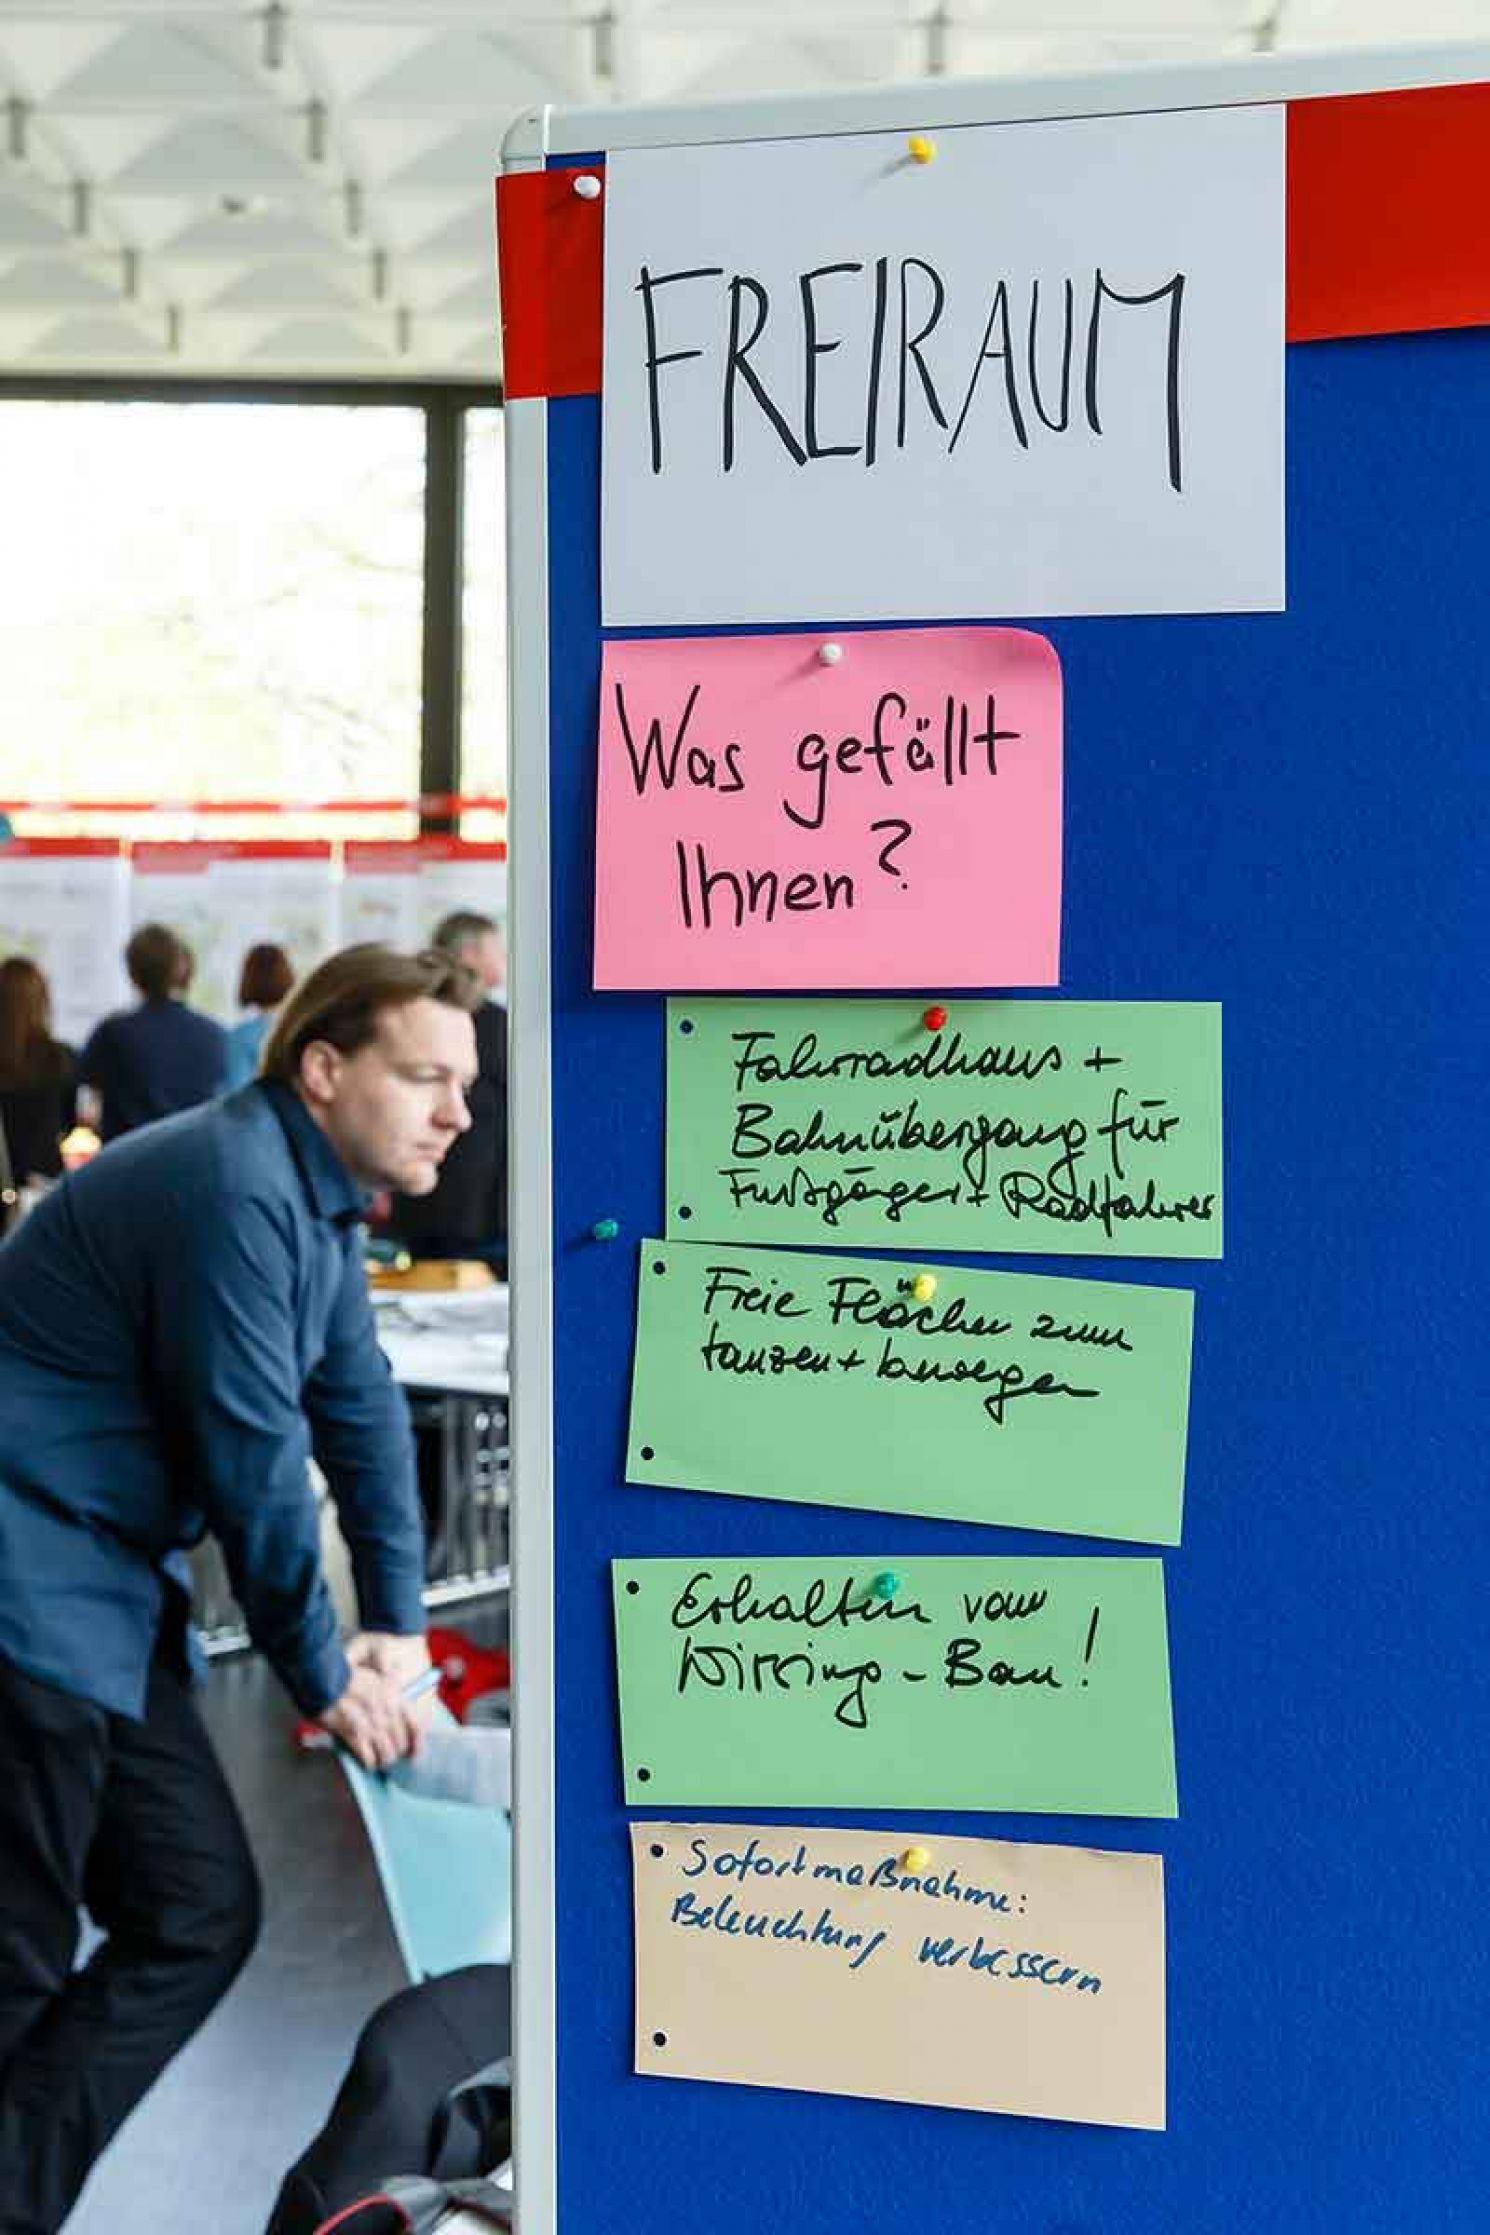 FREIRAUM
Was gefällt
Ihnen?
Fahrradhaus +
Bahnübergang für
Fußgänger + Radfahrer
Freie Flächen zum
tanzen + bewegen
Erhalten vom
Wissing-Bau!
Sofortmaßnahme:
Beleuchtung verbessern